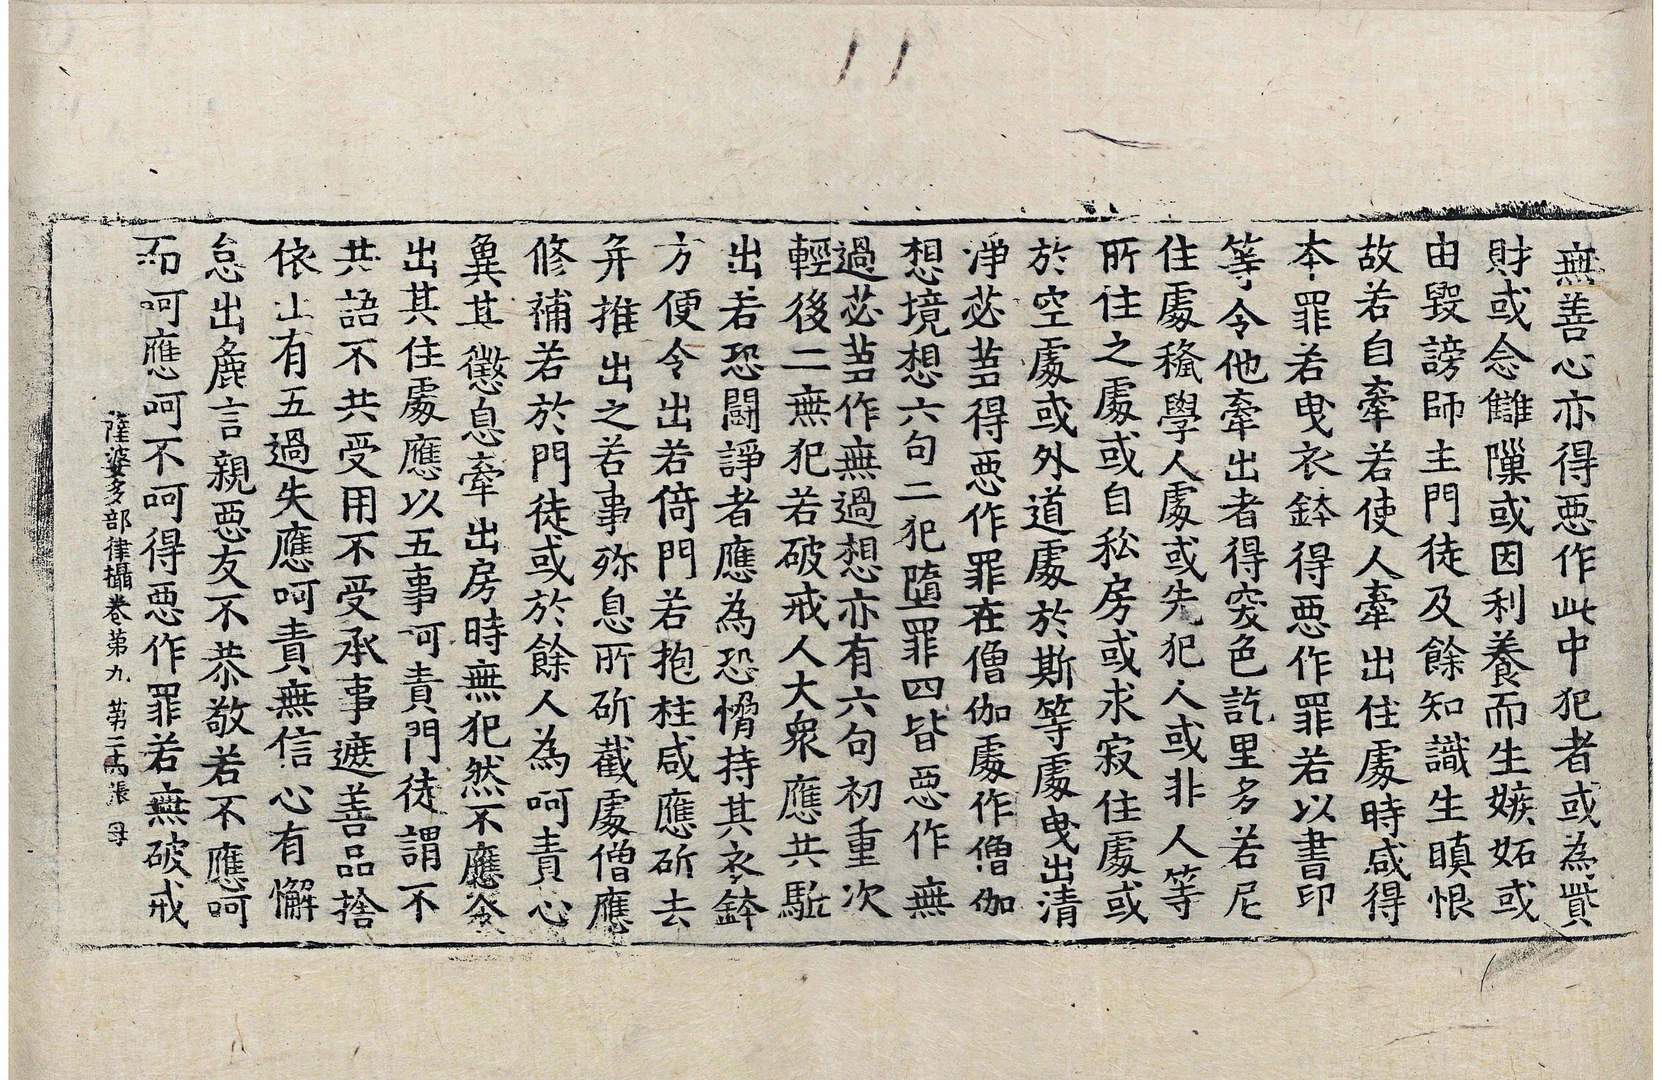 無善心亦得惡作此中犯者或為貲
財或念讎隟或因利養而生嫉妬或
由毀謗師主門徒及餘知識生瞋恨
故若自牽若使人牽出住處時咸得
本罪若曳衣鉢得惡作罪若以書印
等令他牽出者得突色訖里多若尼
住處穢學人處或先犯人或非人等
所住之處或自私房或求寂住處或
於空處或外道處於斯等處曳出清
淨苾芻得惡作罪在僧伽處作僧伽
想境想六句二犯墮罪四皆惡作無
過苾芻作無過想亦有六句初重次
輕後二無犯若破戒人大衆應共駈
出若恐鬪諍者應為恐愶持其衣鉢
方便令出若倚門若抱柱咸應斫去
并推出之若事殄息所斫截處僧應
修補若於門徒或於餘人為呵責心
兾其懲息牽出房時無犯然不應令
出其住處應以五事呵責門徒謂不
共語不共受用不受承事遮善品捨
依止有五過失應呵責無信心有懈
怠出麁言親惡友不恭敬若不應呵
而呵應呵不呵得惡作罪若無破戒
薩婆多部律攝卷第九 第二 張 母